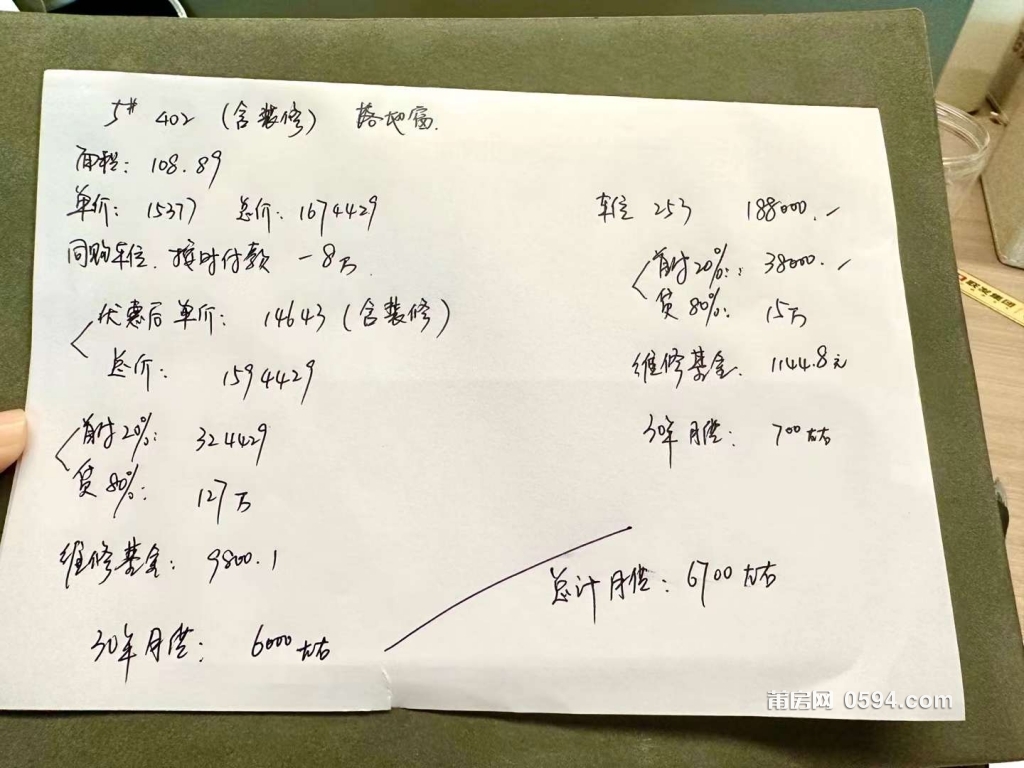 5# 402 (含装修) 落地窗.
面积: 108.89
单价: 15377 总价: 1674429
同购车位、按时付款 -8万.
优惠后 单价: 14643 (含装修)
总价: 1594429
首付20%: 324429
贷80%: 127万
维修基金: 9800.1
30年月供: 6000左右
车位 253 188000.
首付20%: 38000.
贷80%: 15万
维修基金: 1144.8元
30年月供: 700左右
总计月供: 6700左右
莆房网 0594.com